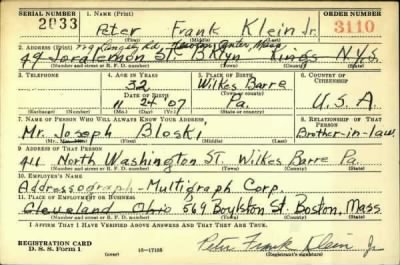 SERIAL NUMBER 1. NAME (Print) ORDER NUMBER
2033 Peter Frank Klein Jr. 3110
(First) (Middle) (Last)
2. ADDRESS (Print)
49 Joralemon ST. Bklyn Kings N.Y.S.
(Number and street or R. F. D. number) (Town) (County) (State)
3. TELEPHONE 4. AGE IN YEARS 5. PLACE OF BIRTH 6. COUNTRY OF CITIZENSHIP
32 Wilkes Barre
DATE OF BIRTH (Town or county)
11 24 07 Pa. U.S.A
(Exchange) (Number) (Mo.) (Day) (Yr.) (State or country)
7. NAME OF PERSON WHO WILL ALWAYS KNOW YOUR ADDRESS 8. RELATIONSHIP OF THAT PERSON
Mr. Joseph Bloski Brother-in-law
(Mr., Mrs., Miss) (First) (Middle) (Last)
9. ADDRESS OF THAT PERSON
411 North Washington ST. Wilkes Barre Pa.
(Number and street or R. F. D. number) (Town) (County) (State)
10. EMPLOYER'S NAME
Addressograph-Multigraph Corp.
11. PLACE OF EMPLOYMENT OR BUSINESS
Cleveland Ohio 569 Boylston St. Boston, Mass
(Number and street or R. F. D. number) (Town) (County) (State)
I AFFIRM THAT I HAVE VERIFIED ABOVE ANSWERS AND THAT THEY ARE TRUE.
REGISTRATION CARD
D. S. S. Form 1 (over) 16-17105 Peter Frank Klein Jr